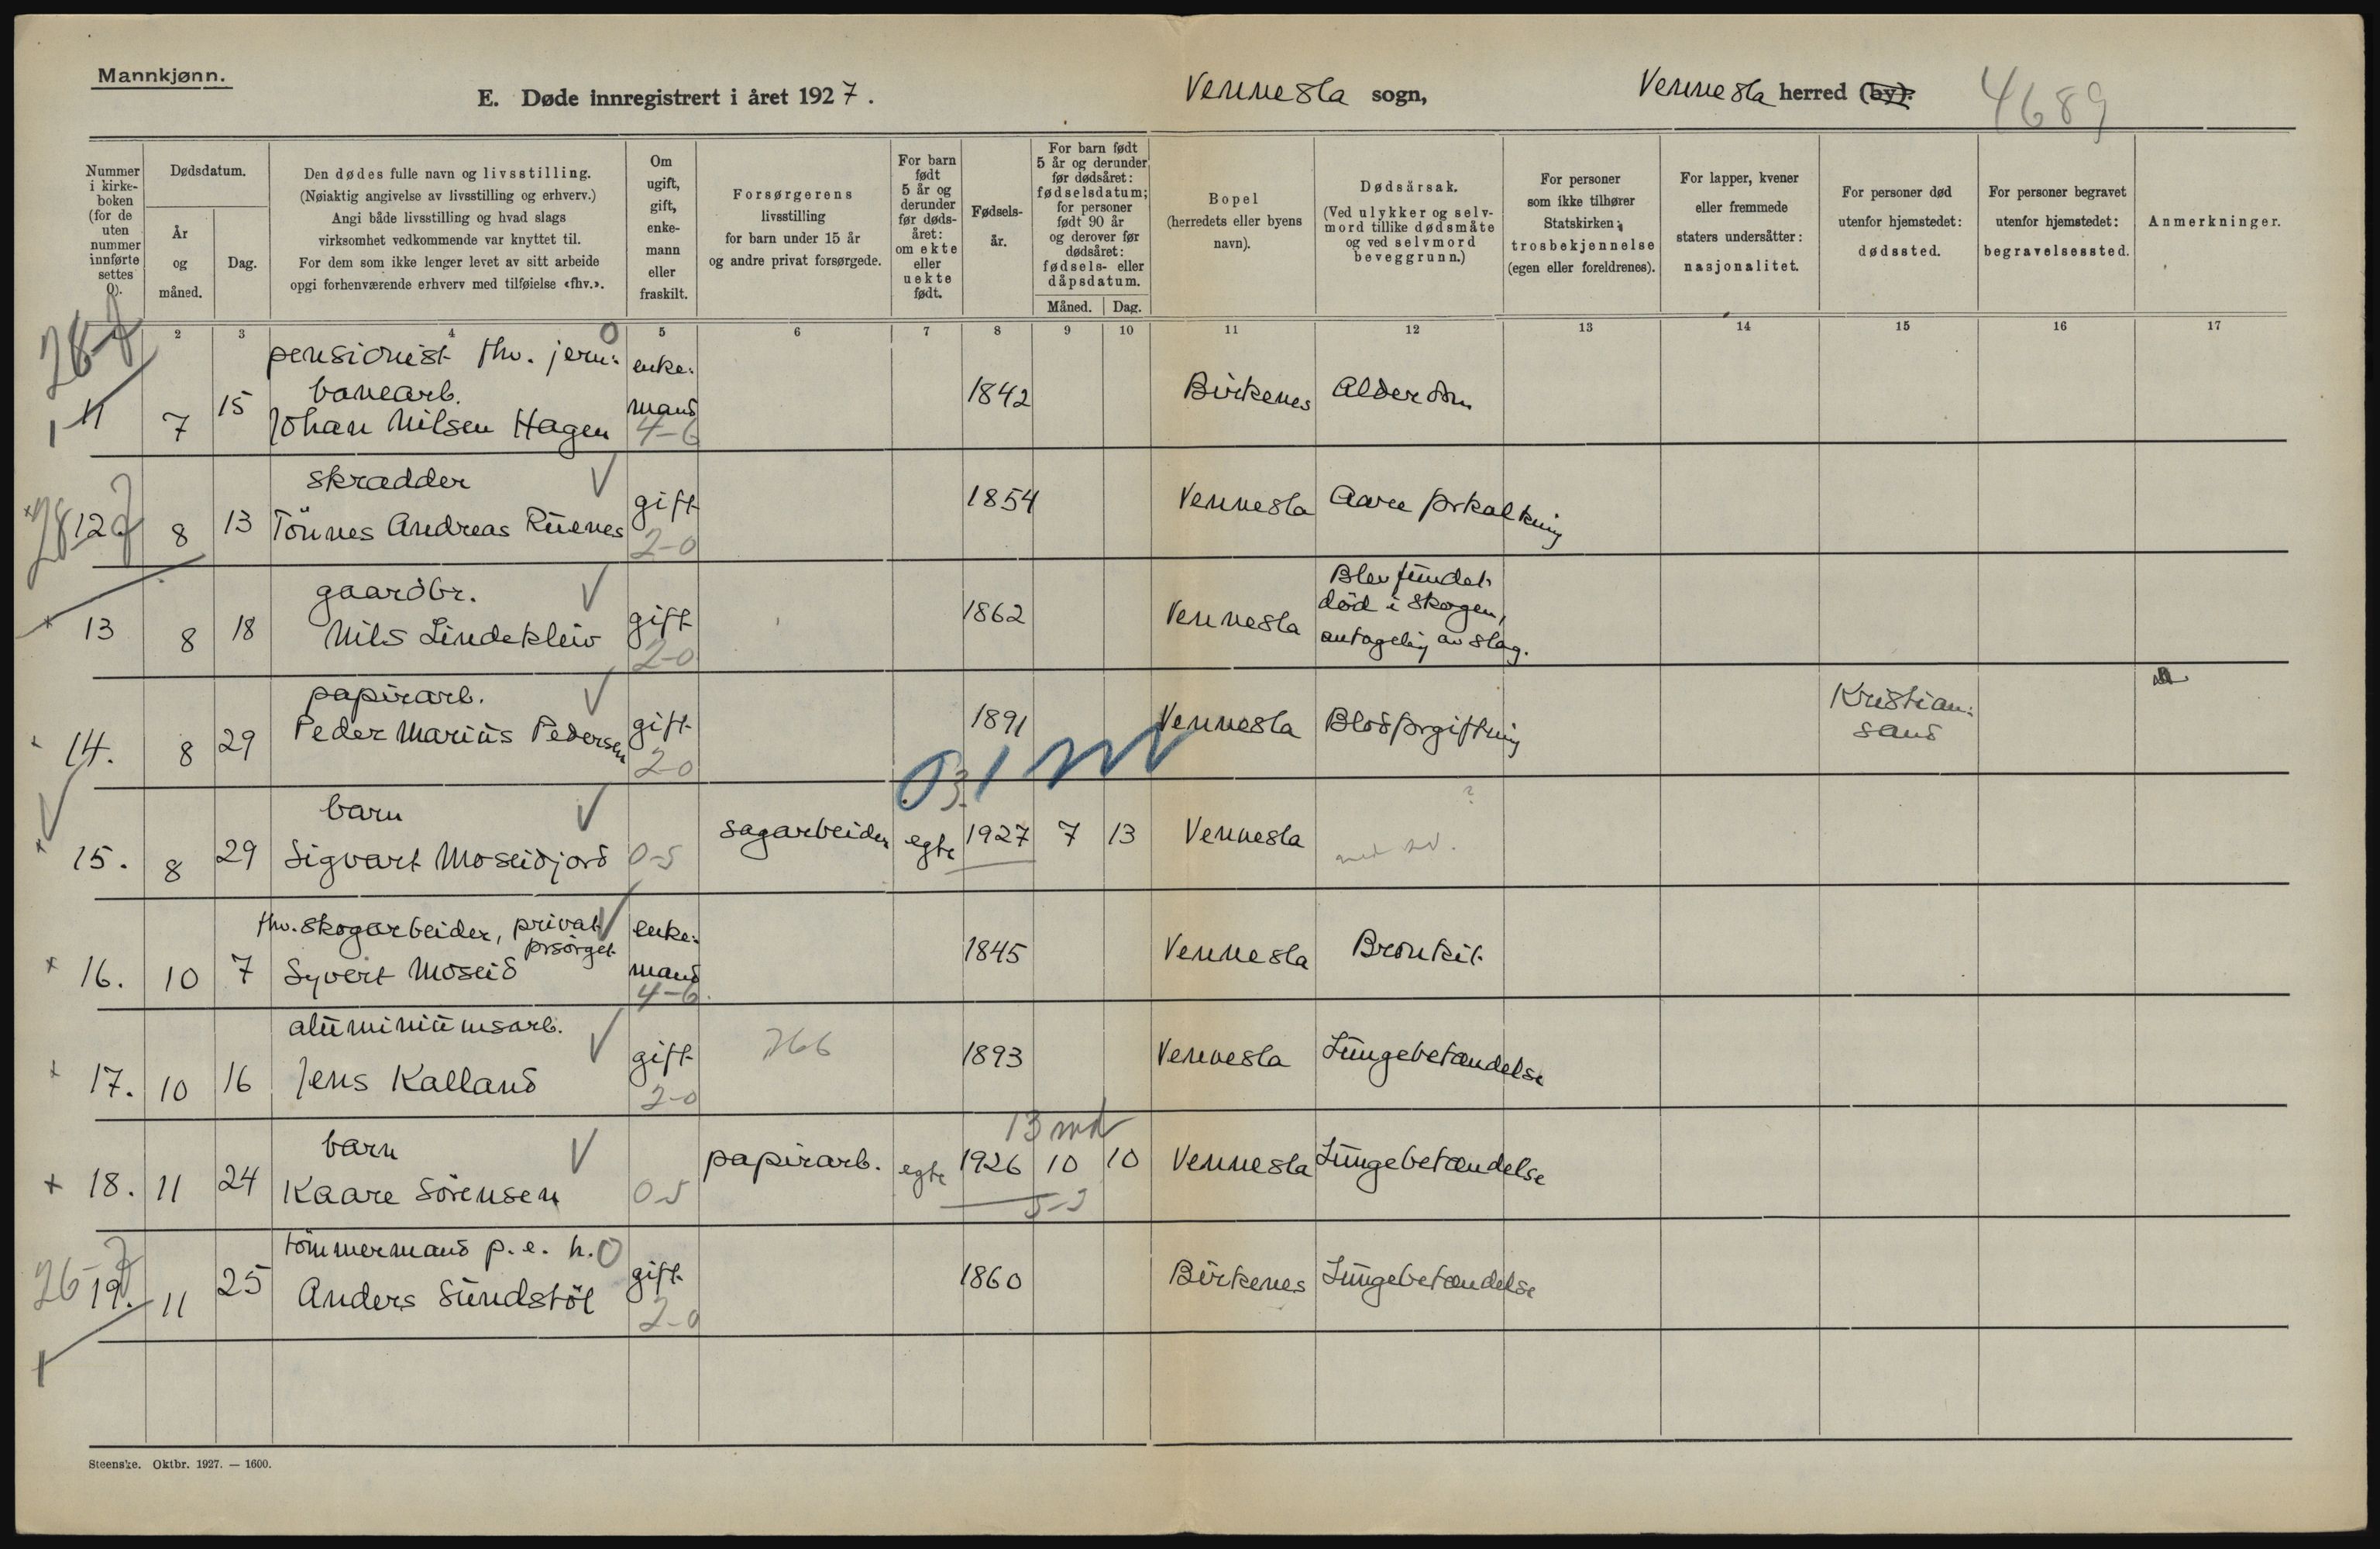 Mannkjønn.
E. Døde innregistrert i året 1927. Vennesla sogn, Vennesla herred (by). 4689
Nummer i kirke-boken (for de uten nummer innførte settes 0).
Dødsdatum.
År og måned.
Dag.
Den dødes fulle navn og livsstilling.
(Nøiaktig angivelse av livsstilling og erhverv.)
Angi både livsstilling og hvad slags
virksomhet vedkommende var knyttet til.
For dem som ikke lenger levet av sitt arbeide
opgi forhenværende erhverv med tilføielse «fhv.».
Om ugift, gift, enke-mann eller fraskilt.
Forsørgerens
livsstilling
for barn under 15 år
og andre privat forsørgede.
For barn født 5 år og derunder før døds-året: om ekte eller uekte født.
Fødsels-år.
For barn født
5 år og derunder
før dødsåret:
fødselsdatum;
for personer
født 90 år
og derover før
dødsåret:
fødsels- eller
dåpsdatum.
Måned. Dag.
Bopel
(herredets eller byens
navn).
Dødsårsak.
(Ved ulykker og selv-
mord tillike dødsmåte
og ved selvmord
beveggrunn.)
For personer
som ikke tilhører
Statskirken:
trosbekjennelse
(egen eller foreldrenes).
For lapper, kvener
eller fremmede
staters undersåtter:
nasjonalitet.
For personer død
utenfor hjemstedet:
dødssted.
For personer begravet
utenfor hjemstedet:
begravelsessted.
Anmerkninger.
2 3 4 5 6 7 8 9 10 11 12 13 14 15 16 17
pensionist fhv. jern: enke:
banearb. mand
11 7 15 Johan Nilsen Hagen 4-6 1842 Birkenes Alderdom
skradder
12 8 13 Tönnes Andreas Rüenes gift 2-0 1854 Vennesla Aareforkalkning
gaardbr.
13 8 18 Nils Lindekleiv gift 2-0 1862 Vennesla Blev fündet
død i skogen,
antagelig av slag.
papirarb.
14. 8 29 Peder Mariüs Pedersen gift 2-0 1891 Vennesla Blodforgiftning Kristian:
sand
barn
15. 8 29 Sigvart Moseidjord 0-5 sagarbeider egte 1927 7 13 Vennesla ?
fhv. skogarbeider, privat
forsørget
16. 10 7 Syvert Moseid enke:
mand 4-6 1845 Vennesla Bronkit
alüminiümsarb.
17. 10 16 Jens Kalland gift 2-0 266 1893 Vennesla Lüngebetændelse
barn 13 md
18. 11 24 Kaare Sörensen 0-5 papirarb. egte 1926 10 10 Vennesla Lüngebetændelse
tömmermand p. e. h.
19. 11 25 Anders Sündstöl gift 2-0 1860 Birkenes Lüngebetændelse
Steenske. Oktbr. 1927. — 1600.